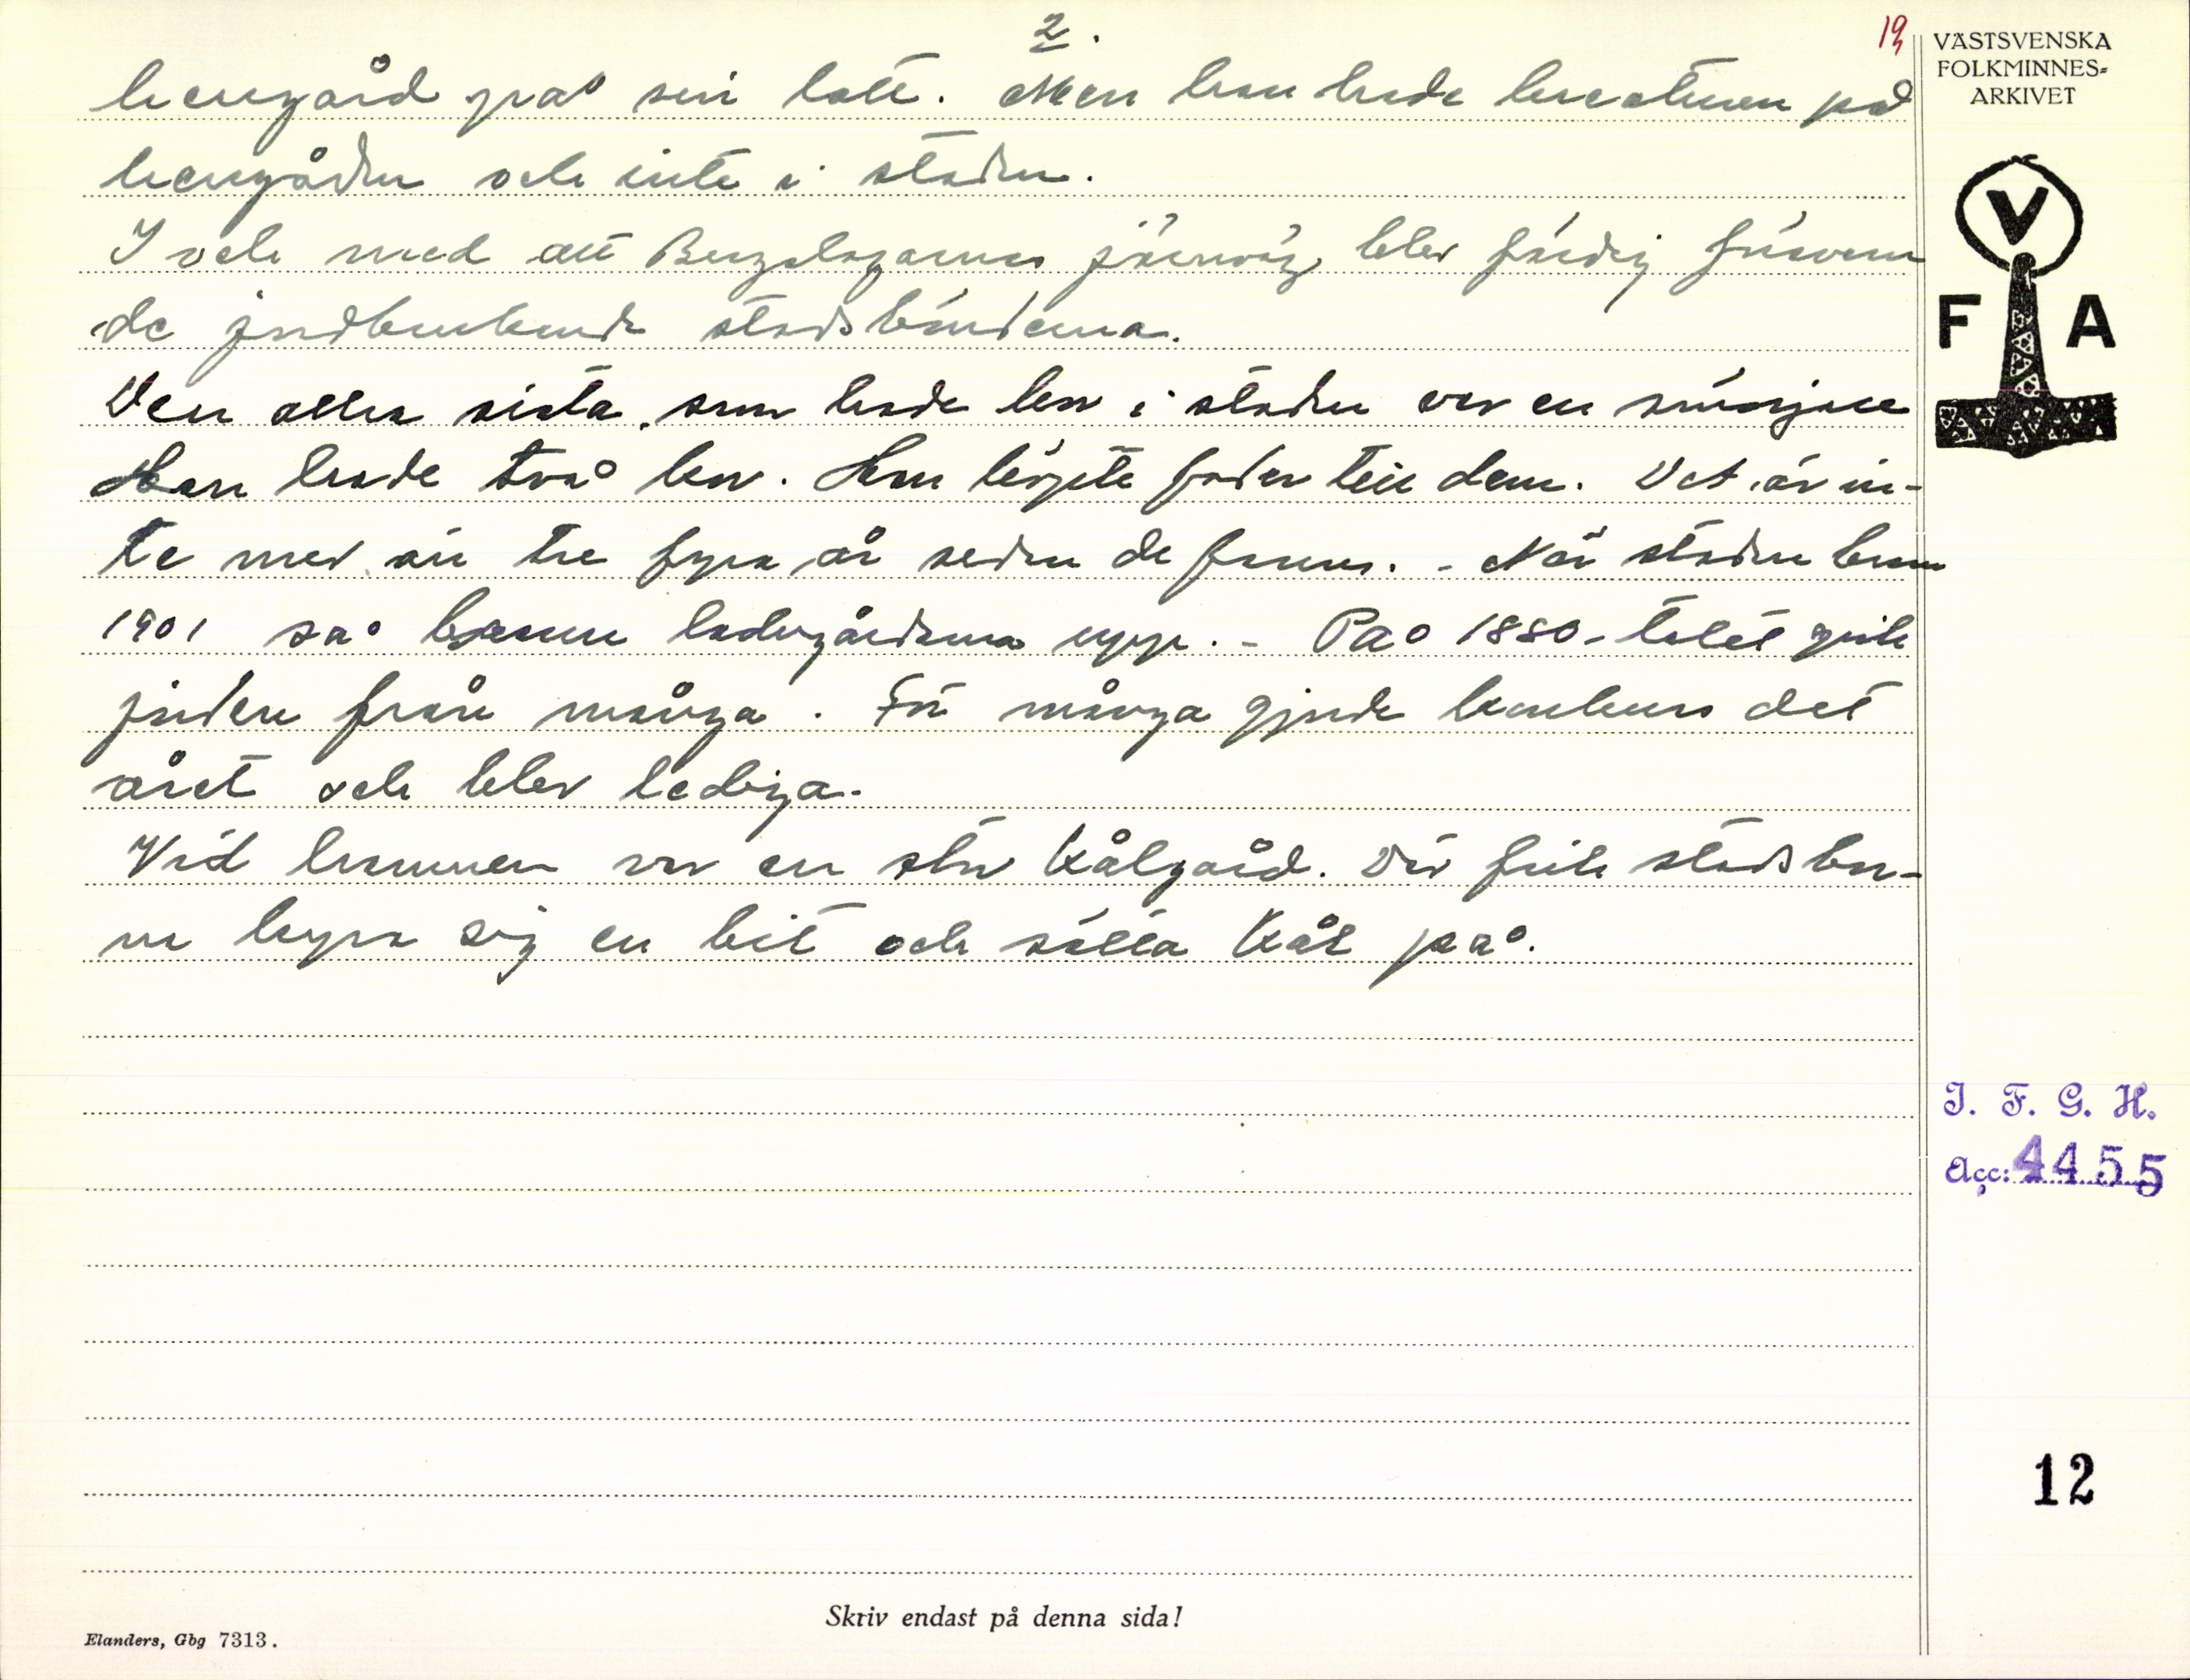 2.
19
herrgård på sin lott. Men han hade kreaturen på
herrgården och inte i staden.
I och med att Bergslagarnas järnväg blev färdig försvann
de jordbrukande stadsbönderna.
Den allra sista, som hade kor i staden var en
Han hade två kor. Han köpte foder till dem. Det är in-
te mer än tre fyra år sedan de fanns. - När staden brann
1901 så brann ladugårdarna upp. - På 1880-talet gick
jorden från många. För många gjorde konkurs det
året och blev lediga.
Vid hamnen var en stor kålgård. Där fick stadsbor-
na köpa sig en bit och sätta kål på.
VÄSTSVENSKA
FOLKMINNES-
ARKIVET
V
F A
I. F. G. H.
Acc: 4455
12
Skriv endast på denna sida!
Elanders, Gbg 7313.